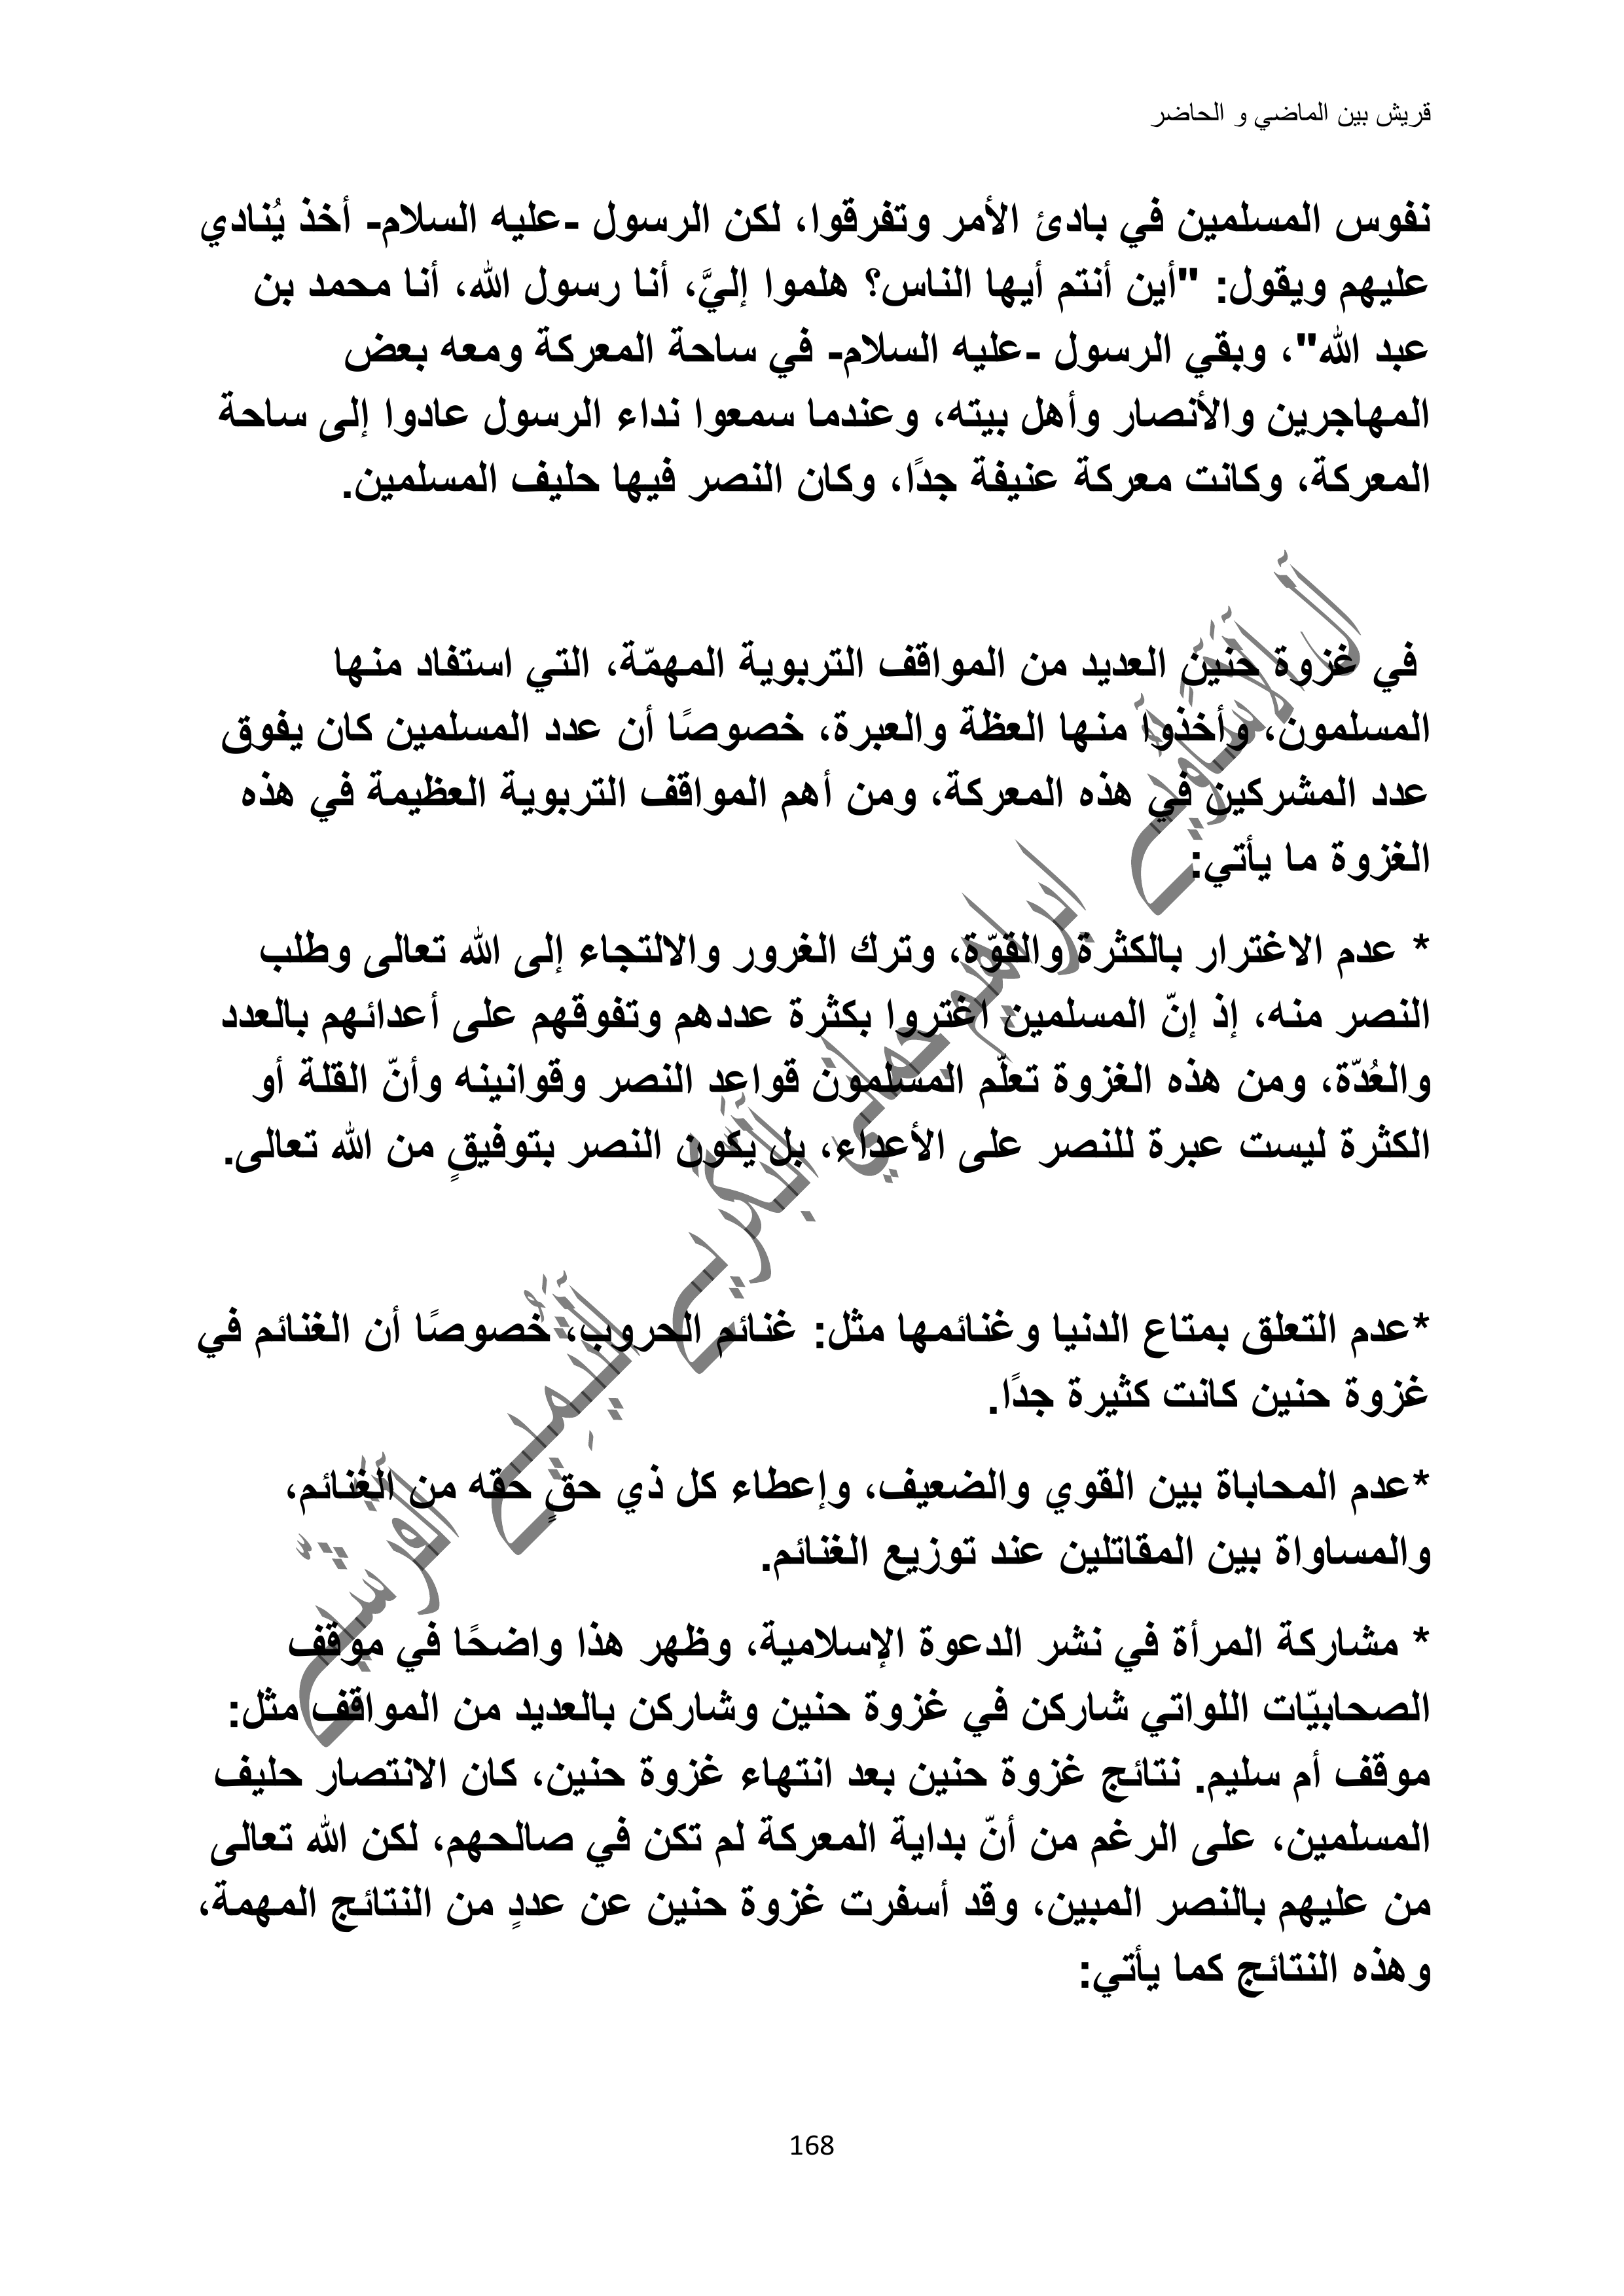 قريش بين الماضي و الحاضر
نفوس المسلمين في بادئ الأمر وتفرقوا، لكن الرسول -عليه السلام- أخذ يُنادي
عليهم ويقول: "أين أنتم أيها الناس؟ هلموا إليَّ، أنا رسول الله، أنا محمد بن
عبد الله"، وبقي الرسول -عليه السلام- في ساحة المعركة ومعه بعض
المهاجرين والأنصار وأهل بيته، وعندما سمعوا نداء الرسول عادوا إلى ساحة
المعركة، وكانت معركة عنيفة جدًا، وكان النصر فيها حليف المسلمين.
في غزوة حنين العديد من المواقف التربوية المهمّة، التي استفاد منها
المسلمون، وأخذوا منها العظة والعبرة، خصوصًا أن عدد المسلمين كان يفوق
عدد المشركين في هذه المعركة، ومن أهم المواقف التربوية العظيمة في هذه
الغزوة ما يأتي:
* عدم الاغترار بالكثرة والقوّة، وترك الغرور والالتجاء إلى الله تعالى وطلب
النصر منه، إذ إنّ المسلمين اغتروا بكثرة عددهم وتفوقهم على أعدائهم بالعدد
والعُدّة، ومن هذه الغزوة تعلّم المسلمون قواعد النصر وقوانينه وأنّ القلة أو
الكثرة ليست عبرة للنصر على الأعداء، بل يكون النصر بتوفيقٍ من الله تعالى.
*عدم التعلق بمتاع الدنيا وغنائمها مثل: غنائم الحروب، خصوصًا أن الغنائم في
غزوة حنين كانت كثيرة جدًا.
*عدم المحاباة بين القوي والضعيف، وإعطاء كل ذي حقٍ حقه من الغنائم،
والمساواة بين المقاتلين عند توزيع الغنائم.
* مشاركة المرأة في نشر الدعوة الإسلامية، وظهر هذا واضحًا في موقف
الصحابيّات اللواتي شاركن في غزوة حنين وشاركن بالعديد من المواقف مثل:
موقف أم سليم. نتائج غزوة حنين بعد انتهاء غزوة حنين، كان الانتصار حليف
المسلمين، على الرغم من أنّ بداية المعركة لم تكن في صالحهم، لكن الله تعالى
من عليهم بالنصر المبين، وقد أسفرت غزوة حنين عن عددٍ من النتائج المهمة،
وهذه النتائج كما يأتي:
168